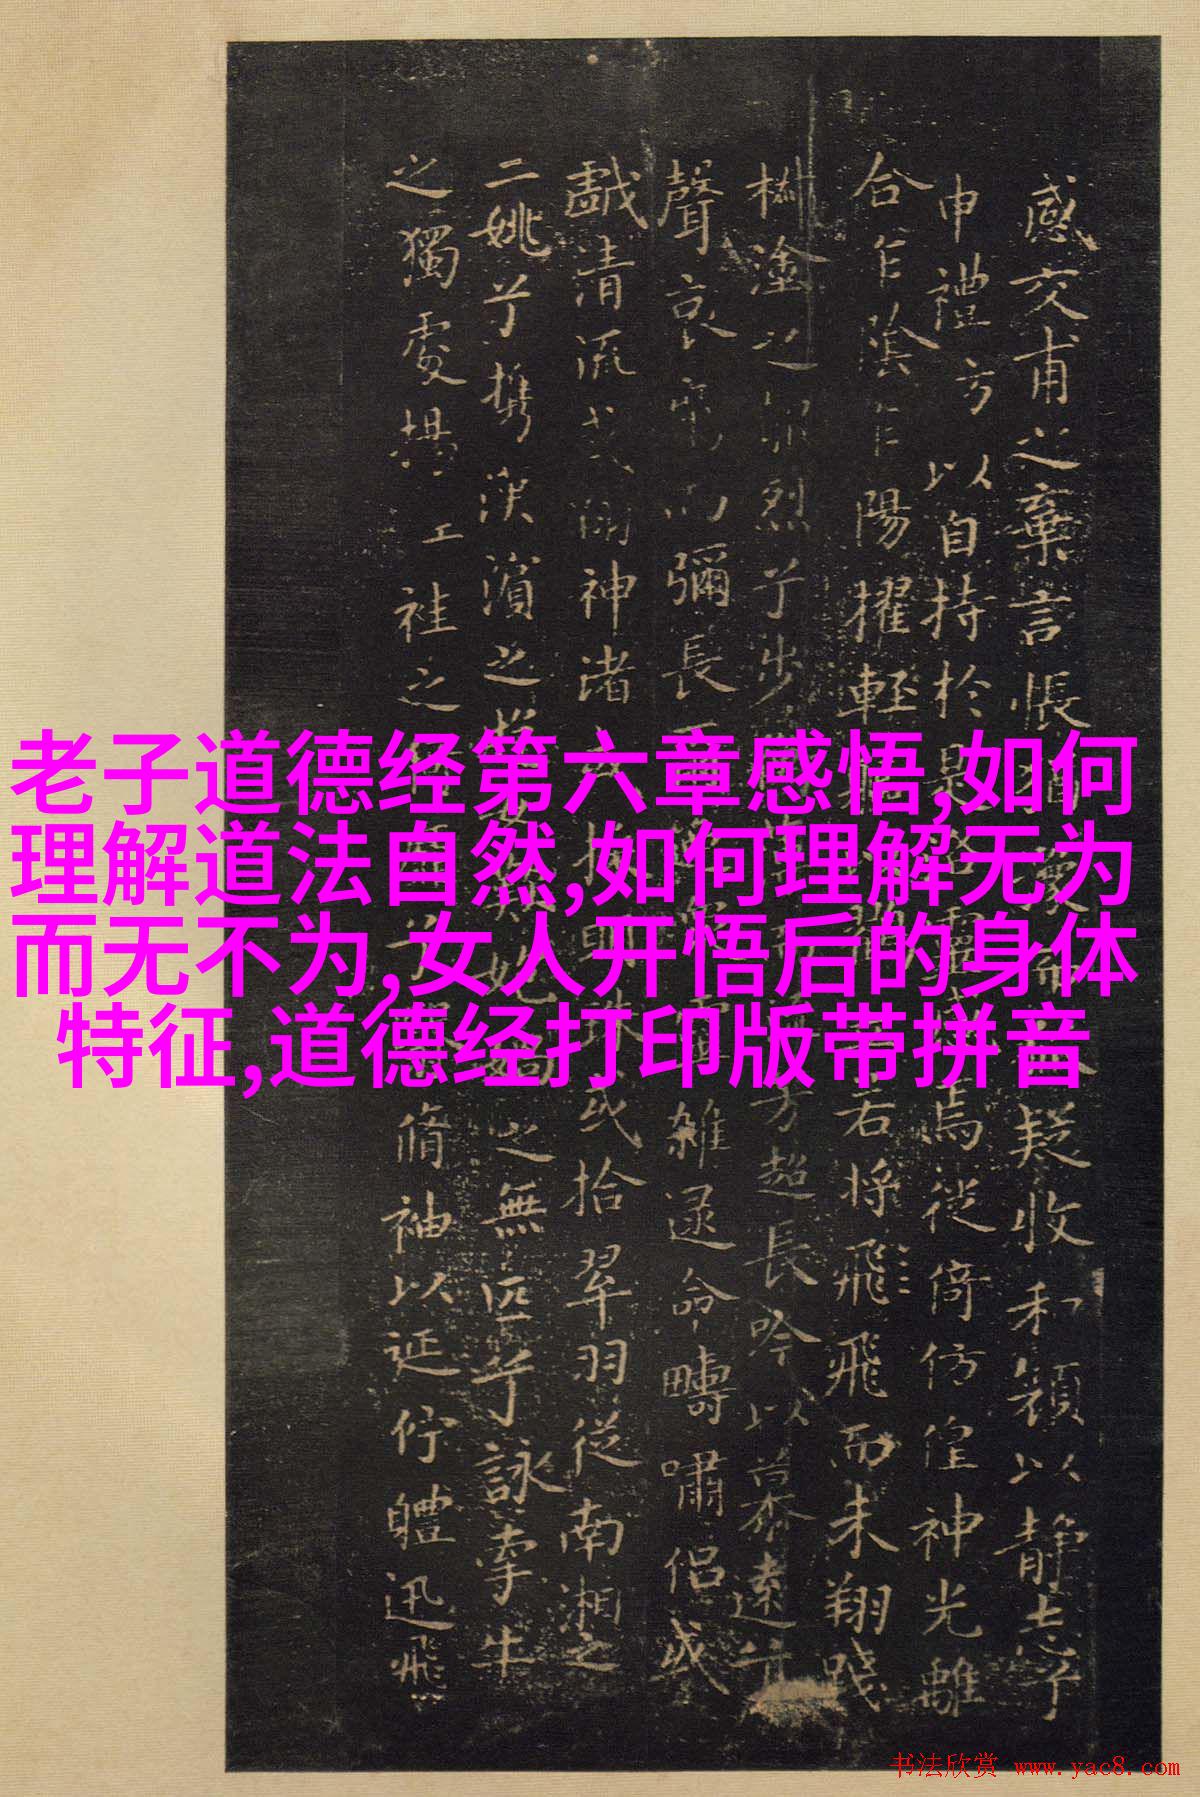 老子道德经第六章感悟,如何
理解道法自然,如何理解无为
而无不为,女人开悟后的身体
特征,道德经打印版带拼音
感交甫之棄言悵疑收和顏以静志兮
申禮方以自持於是焉徙倚仿偟神光離
合乍陰乍陽擢輕若將飛而未翔踐
椒塗之郁烈兮步芳超長吟以慕遠兮
聲哀而彌長雜遝命疇嘯侶或
戲清流或神渚明珠或拾翠羽從南湘之
二姚兮攜漢濱之之無匹兮詠牽牛
之獨處揚袿之脩袖以延佇體迅飛
书法欣赏 www.yac8.com